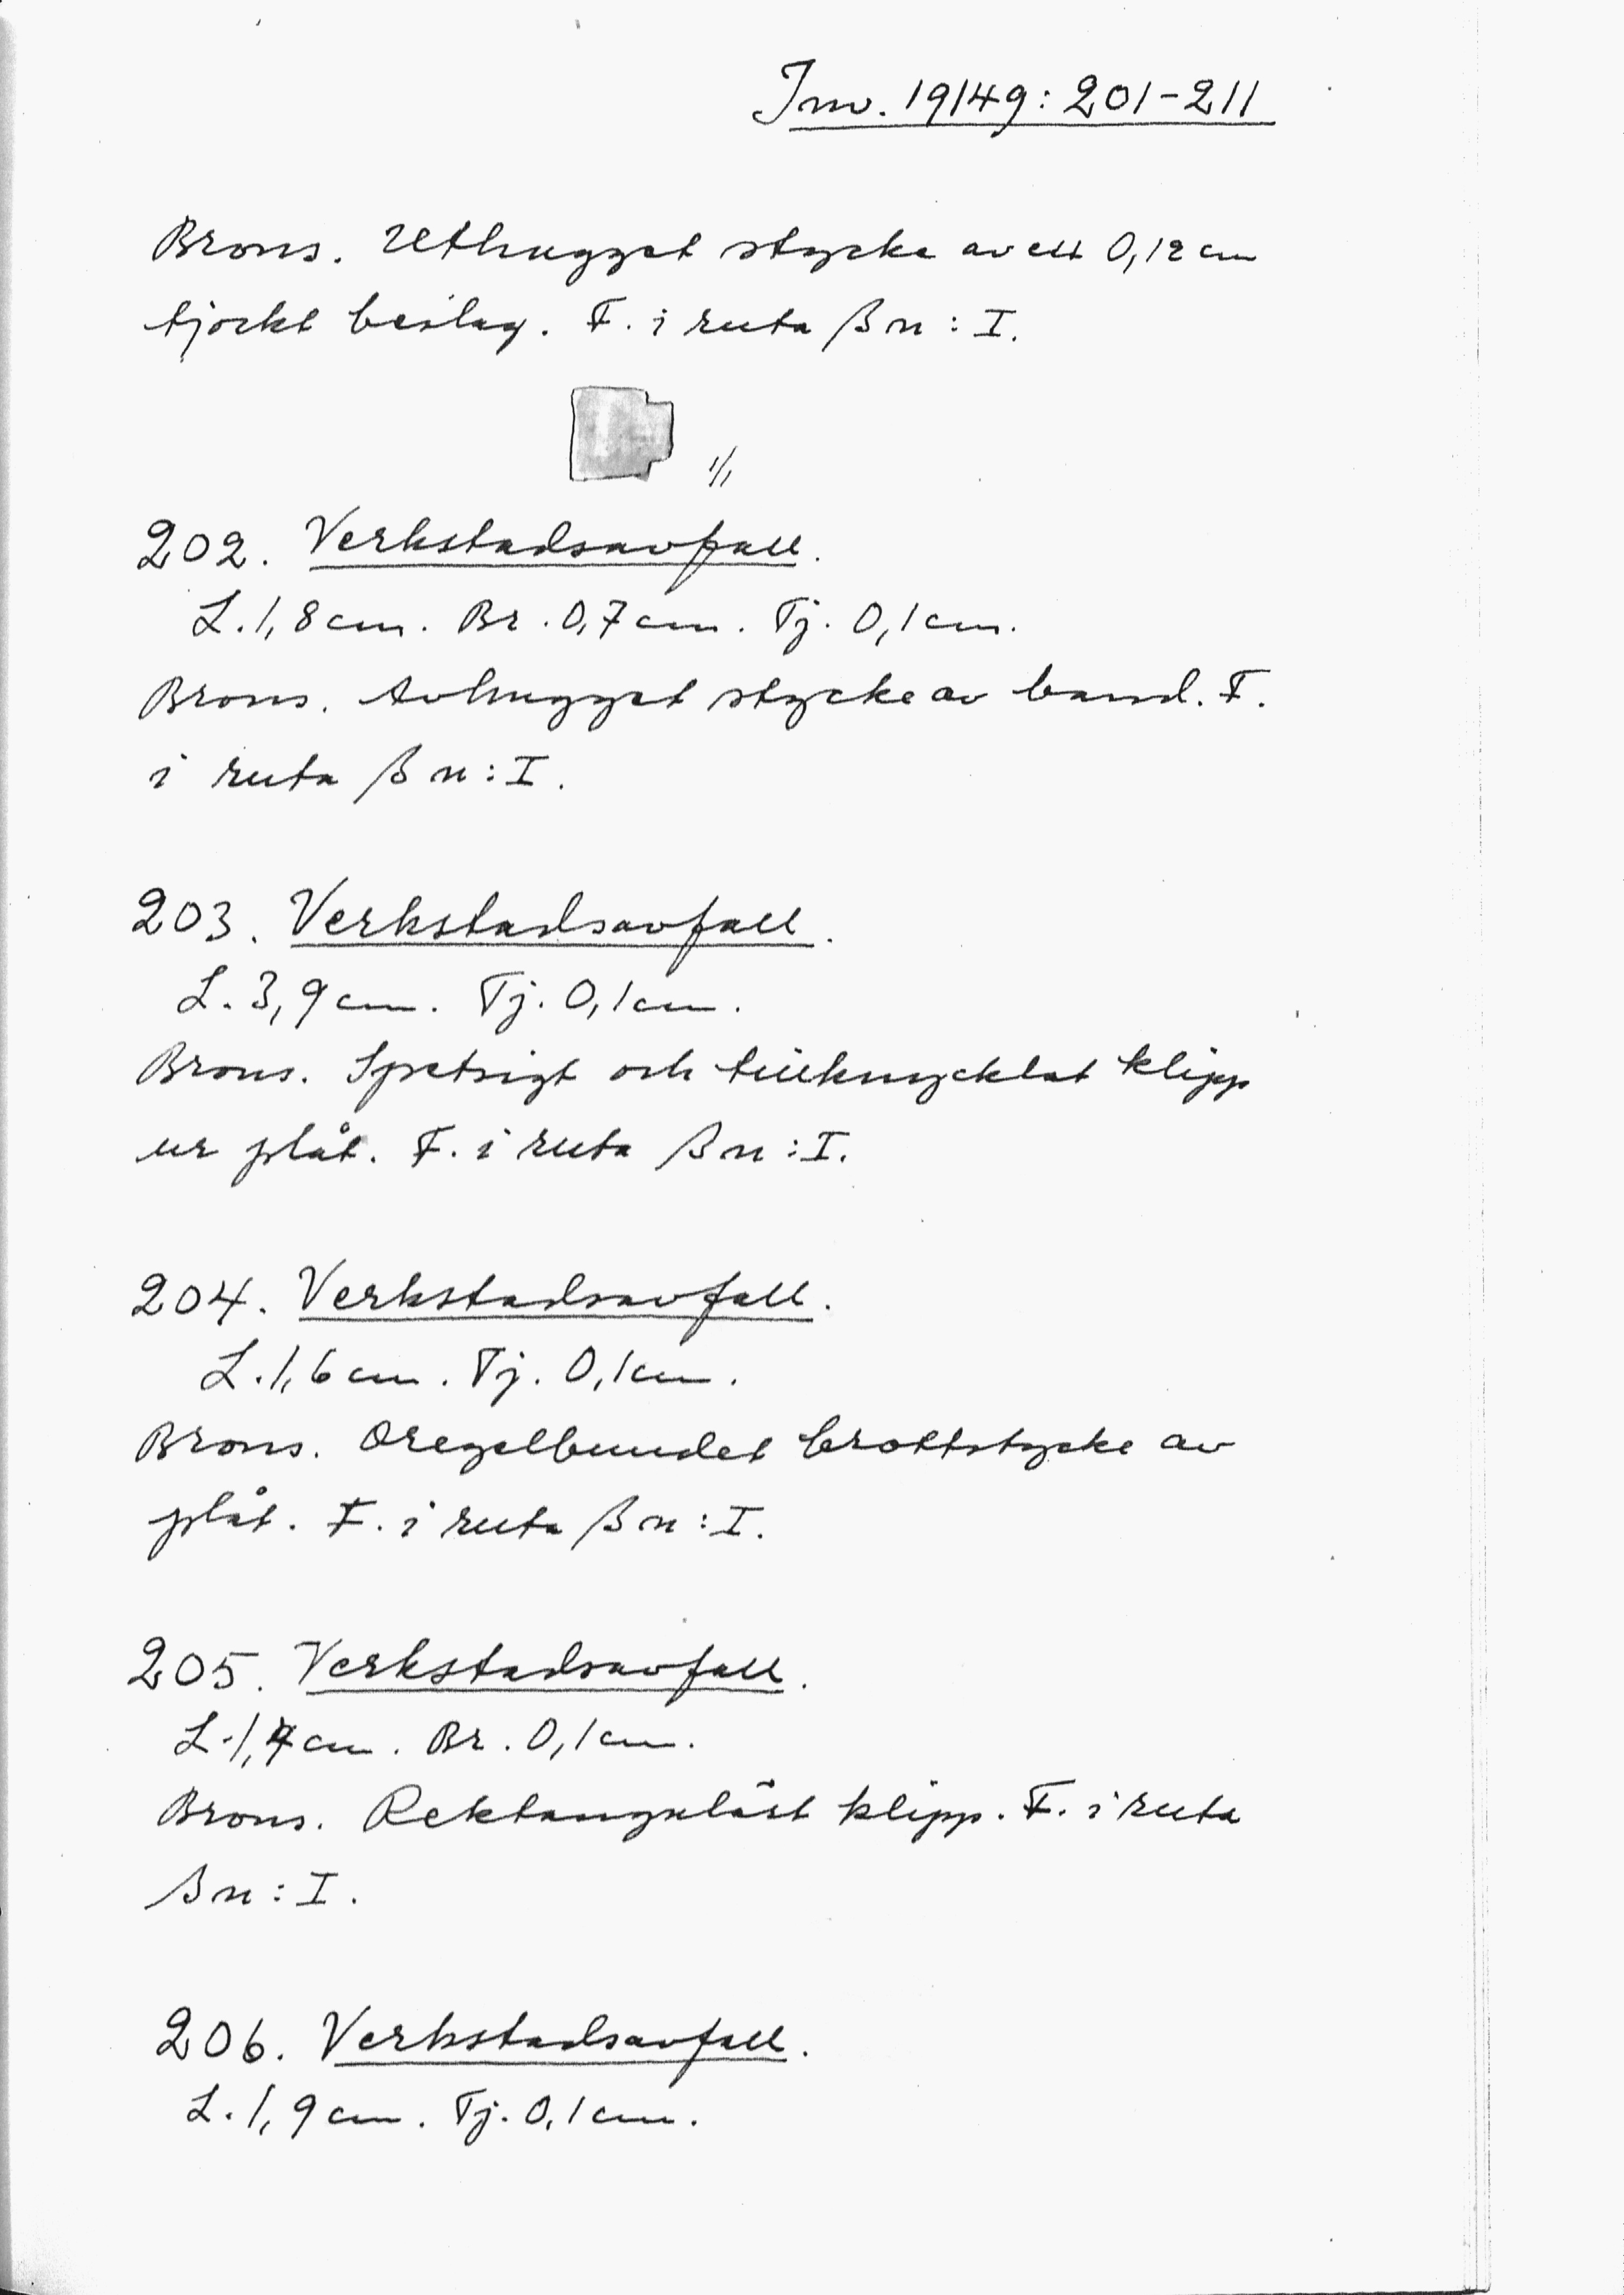 Inv. 19149: 201-211
Brons. Uthugget stycke av ett 0,12 cm
tjockt beslag. F. i ruta ßn: I.
1/1
202. Verkstadsavfall.
L. 1,8 cm. Br. 0,7 cm. Tj. 0,1 cm.
Brons. Avhugget stycke av band. F.
i ruta ßn: I.
203. Verkstadsavfall.
L. 3,9 cm. Tj. 0,1 cm.
Brons. Spetsigt och tillknycklat klipp
ur plåt. F. i ruta ßn: I.
204. Verkstadsavfall.
L. 1,6 cm. Tj. 0,1 cm.
Brons. Oregelbundet brottstycke av
plåt. F. i ruta ßn: I.
205. Verkstadsavfall.
cm. Br. 0,1 cm.
Brons. Rektangulärt klipp. F. i ruta
ßn: I.
206. Verkstadsavfall.
L. 1,9 cm. Tj. 0,1 cm.